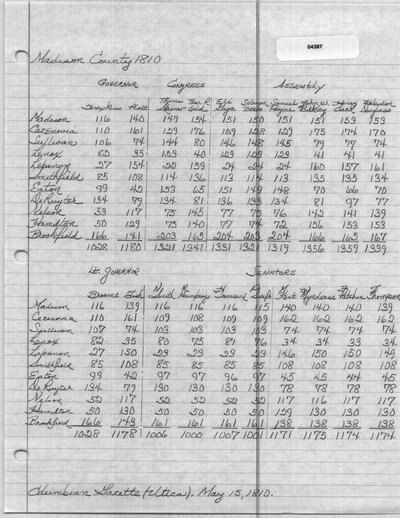 04387
Madison County 1810
Governor Congress Assembly
Tompkins Platt Thomas Gold Ebh Solomon Samuel John W. Henry
Payne Bulkley Clark
Madison 116 140 149 154 151 150 151 151 153 153
Cazenovia 110 161 129 176 129 128 129 175 174 170
Sullivan 106 74 144 80 146 148 145 79 77 74
Lenox 82 35 123 40 123 123 123 41 41 41
Lebanon 27 154 22 159 24 24 24 160 157 161
Smithfield 85 108 114 136 113 114 113 135 135 134
Eaton 99 42 153 65 151 149 148 70 66 70
DeRuyter 134 79 134 81 136 133 134 81 97 77
Nelson 53 117 75 145 77 75 76 142 141 139
Hamilton 50 129 75 140 77 74 72 156 153 153
Brookfield 166 141 203 165 204 203 204 166 165 167
1028 1180 1321 1341 1331 1321 1319 1356 1359 1339
Lt. Governor Senators
Broome Fish Smith Humphrey Townsend Kent Wynderse Fletcher Thompson
Madison 116 139 116 116 116 115 140 140 140 139
Cazenovia 110 161 109 108 109 109 162 162 162 162
Sullivan 107 74 103 103 103 103 74 74 74 74
Lenox 82 35 80 75 81 76 34 34 33 34
Lebanon 27 150 23 23 23 23 146 150 150 149
Smithfield 85 108 85 85 85 85 108 108 108 108
Eaton 99 42 97 97 96 97 45 45 44 45
DeRuyter 134 79 130 130 130 130 78 78 78 78
Nelson 52 117 52 52 52 52 117 116 117 117
Hamilton 50 130 50 50 50 50 129 130 130 130
Brookfield 166 143 161 161 161 161 138 138 138 138
1028 1178 1006 1000 1007 1001 1171 1175 1174 1174
Columbian Gazette (Utica). May 15, 1810.